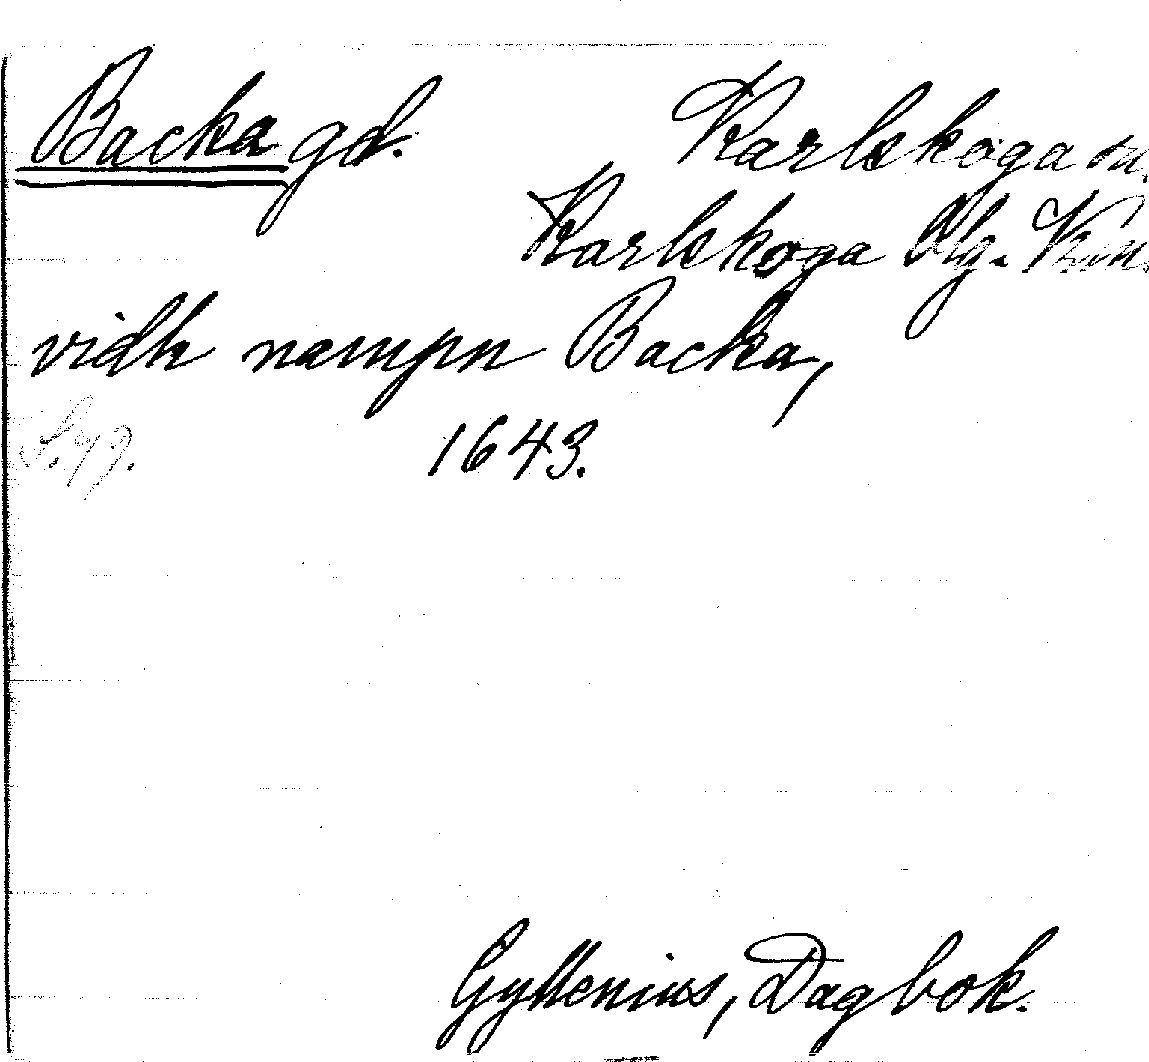 Backa gd. Karlskoga sn.
Karlskoga Blg. Km.
vidh nampn Backa,
S. 49. 1643.
Gyllenius, Dagbok.